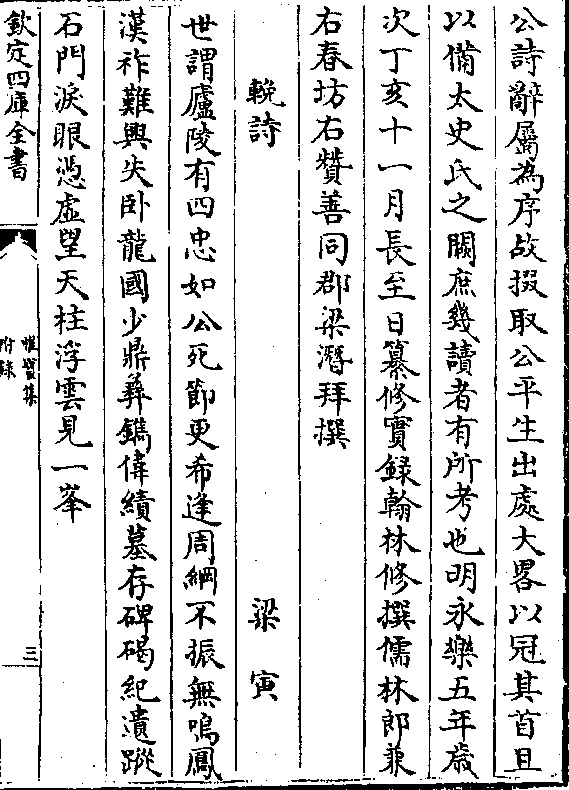 公詩辭屬為序故掇取公平生出處大畧以冠其首且
以備太史氏之闕庶幾讀者有所考也明永樂五年歳
次丁亥十一月長至日纂修實録翰林修撰儒林郎兼
右春坊右贊善同郡梁潛拜撰
輓詩　梁寅
世謂廬陵有四忠如公死節更希逢周綱不振無鳴鳳
漢祚難興失卧龍國少鼎彛鐫偉績墓存碑碣紀遺蹤
石門淚眼憑虛望天柱浮雲見一峯
欽定四庫全書
惟實集
附錄
三